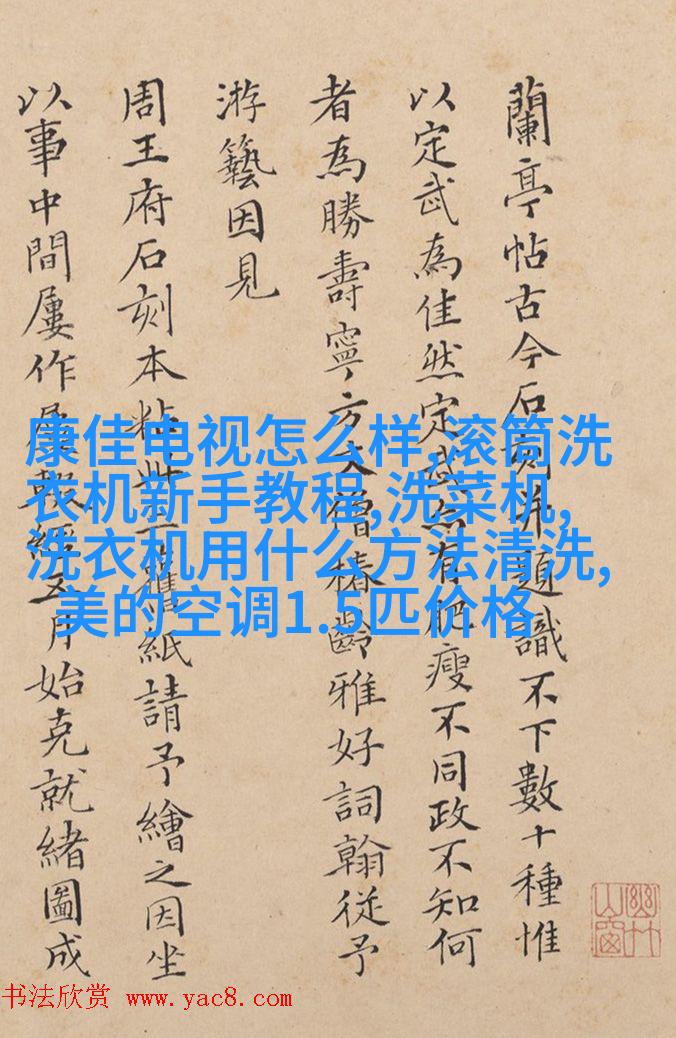 蘭亭帖古今石刻并題識不下數十種惟
以定武為佳然定武有肥瘦不同政不知何
者為勝壽寧方丈僧椿齡雅好詞翰從予
游藝因見
周王府石刻本粘舊紙請予繪之因坐
以事中間屢作屢輟經五月始克就緒圖成
康佳电视怎么样,滚筒洗
衣机新手教程,洗菜机,
洗衣机用什么方法清洗,
美的空调1.5匹价格
幽竹山窗
书法欣赏 www.yac8.com